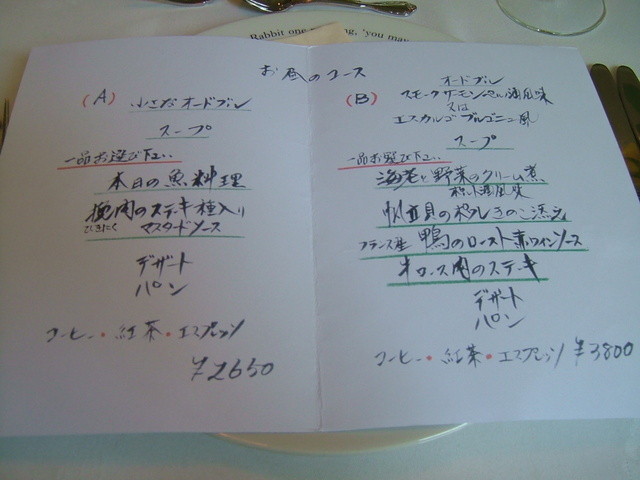 Rabbit one
'you may
お昼のコース
(A) 小さな オードブル
スープ
一品お選び下さい
本日の魚料理
挽肉のステキ 種入り
ひきにく マスタードソース
デザート
パン
コーヒー・紅茶・エスプレッソ
¥2650
オードブル
(B) スモークサーモン 風味
又は
エスカルゴ ブルゴーニュ風
スープ
一品お選び下さい
海老と野菜のクリーム煮
風味
帆立貝のポワレきのこ添え
フランス産 鴨のロースト赤ワインソース
牛ロース肉のステーキ
デザート
パン
コーヒー・紅茶・エスプレッソ ¥3800